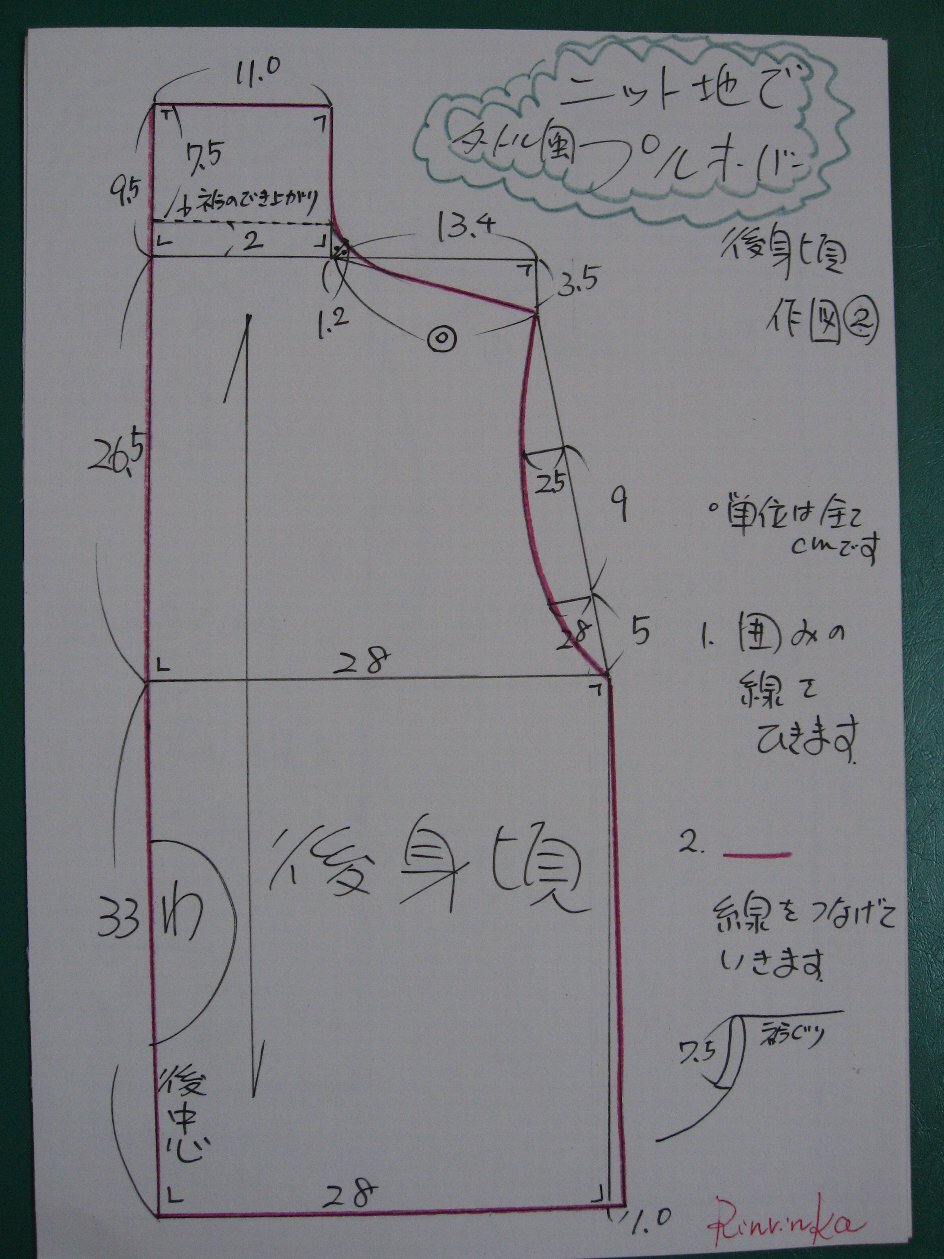 ニット地で
タートル風プルオーバー
後身頃
作図②
11.0
7.5
9.5
衿のでき上がり
2
13.4
3.5
1.2
◎
26.5
25
9
28
5
28
°単位は全て
cmです
1. 囲みの
線を
ひきます
2.
線をつなげて
いきます
7.5
衿ぐり
後身頃
33
わ
後中心
28
1.0
Rinrinka